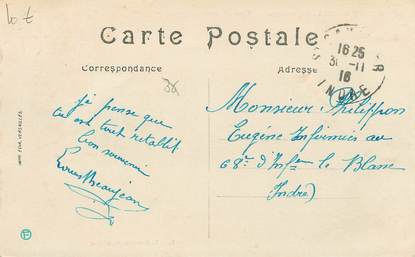 lot
Carte Postale
Correspondance
Adresse
16 25
31-11
16
INDRE
je pense que
tu es tout rétablit
bon souvenir
Louis Beaujean
Monsieur Philippon
Eugène Infirmier au
68e d'Infie le Blanc
Indre)